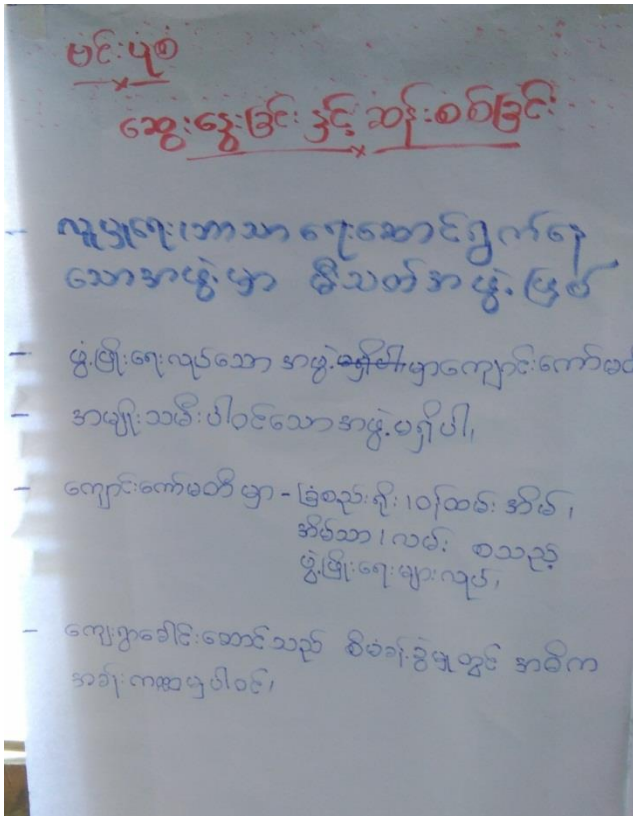 ဗင်းပုံစံ
ဆွေးနွေးခြင်း နှင့် ဆန်းစစ်ခြင်း
- လူမှုရေး၊ ဘာသာရေးဆောင်ရွက်နေ
သောအဖွဲ့မှာ မီးသတ်အဖွဲ့ ဖြစ်
- ဖွံ့ဖြိုးရေးလုပ်သော အဖွဲ့မရှိပါ၊ မှာကျောင်းကော်မတီ
- အမျိုးသမီးပါဝင်သောအဖွဲ့မရှိပါ၊
- ကျောင်းကော်မတီ မှာ - ခြံစည်းရိုး၊ ဝန်ထမ်းအိမ်၊
အိမ်သာ၊ လမ်း စသည့်
ဖွံ့ဖြိုးရေးများလုပ်၊
- ကျေးရွာခေါင်းဆောင်သည် စီမံခန့်ခွဲမှုတွင် အဓိက
အခန်းကဏ္ဍမှပါဝင်၊